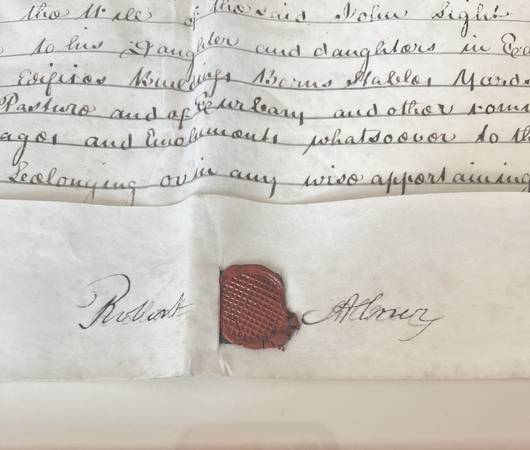 the Will of the said John Light
to his Daughter and daughters in
Edifices Buildings Barns Stables Yards
Pasture and and other
and Emoluments whatsoever to
belonging or in any wise appertaining
Robert